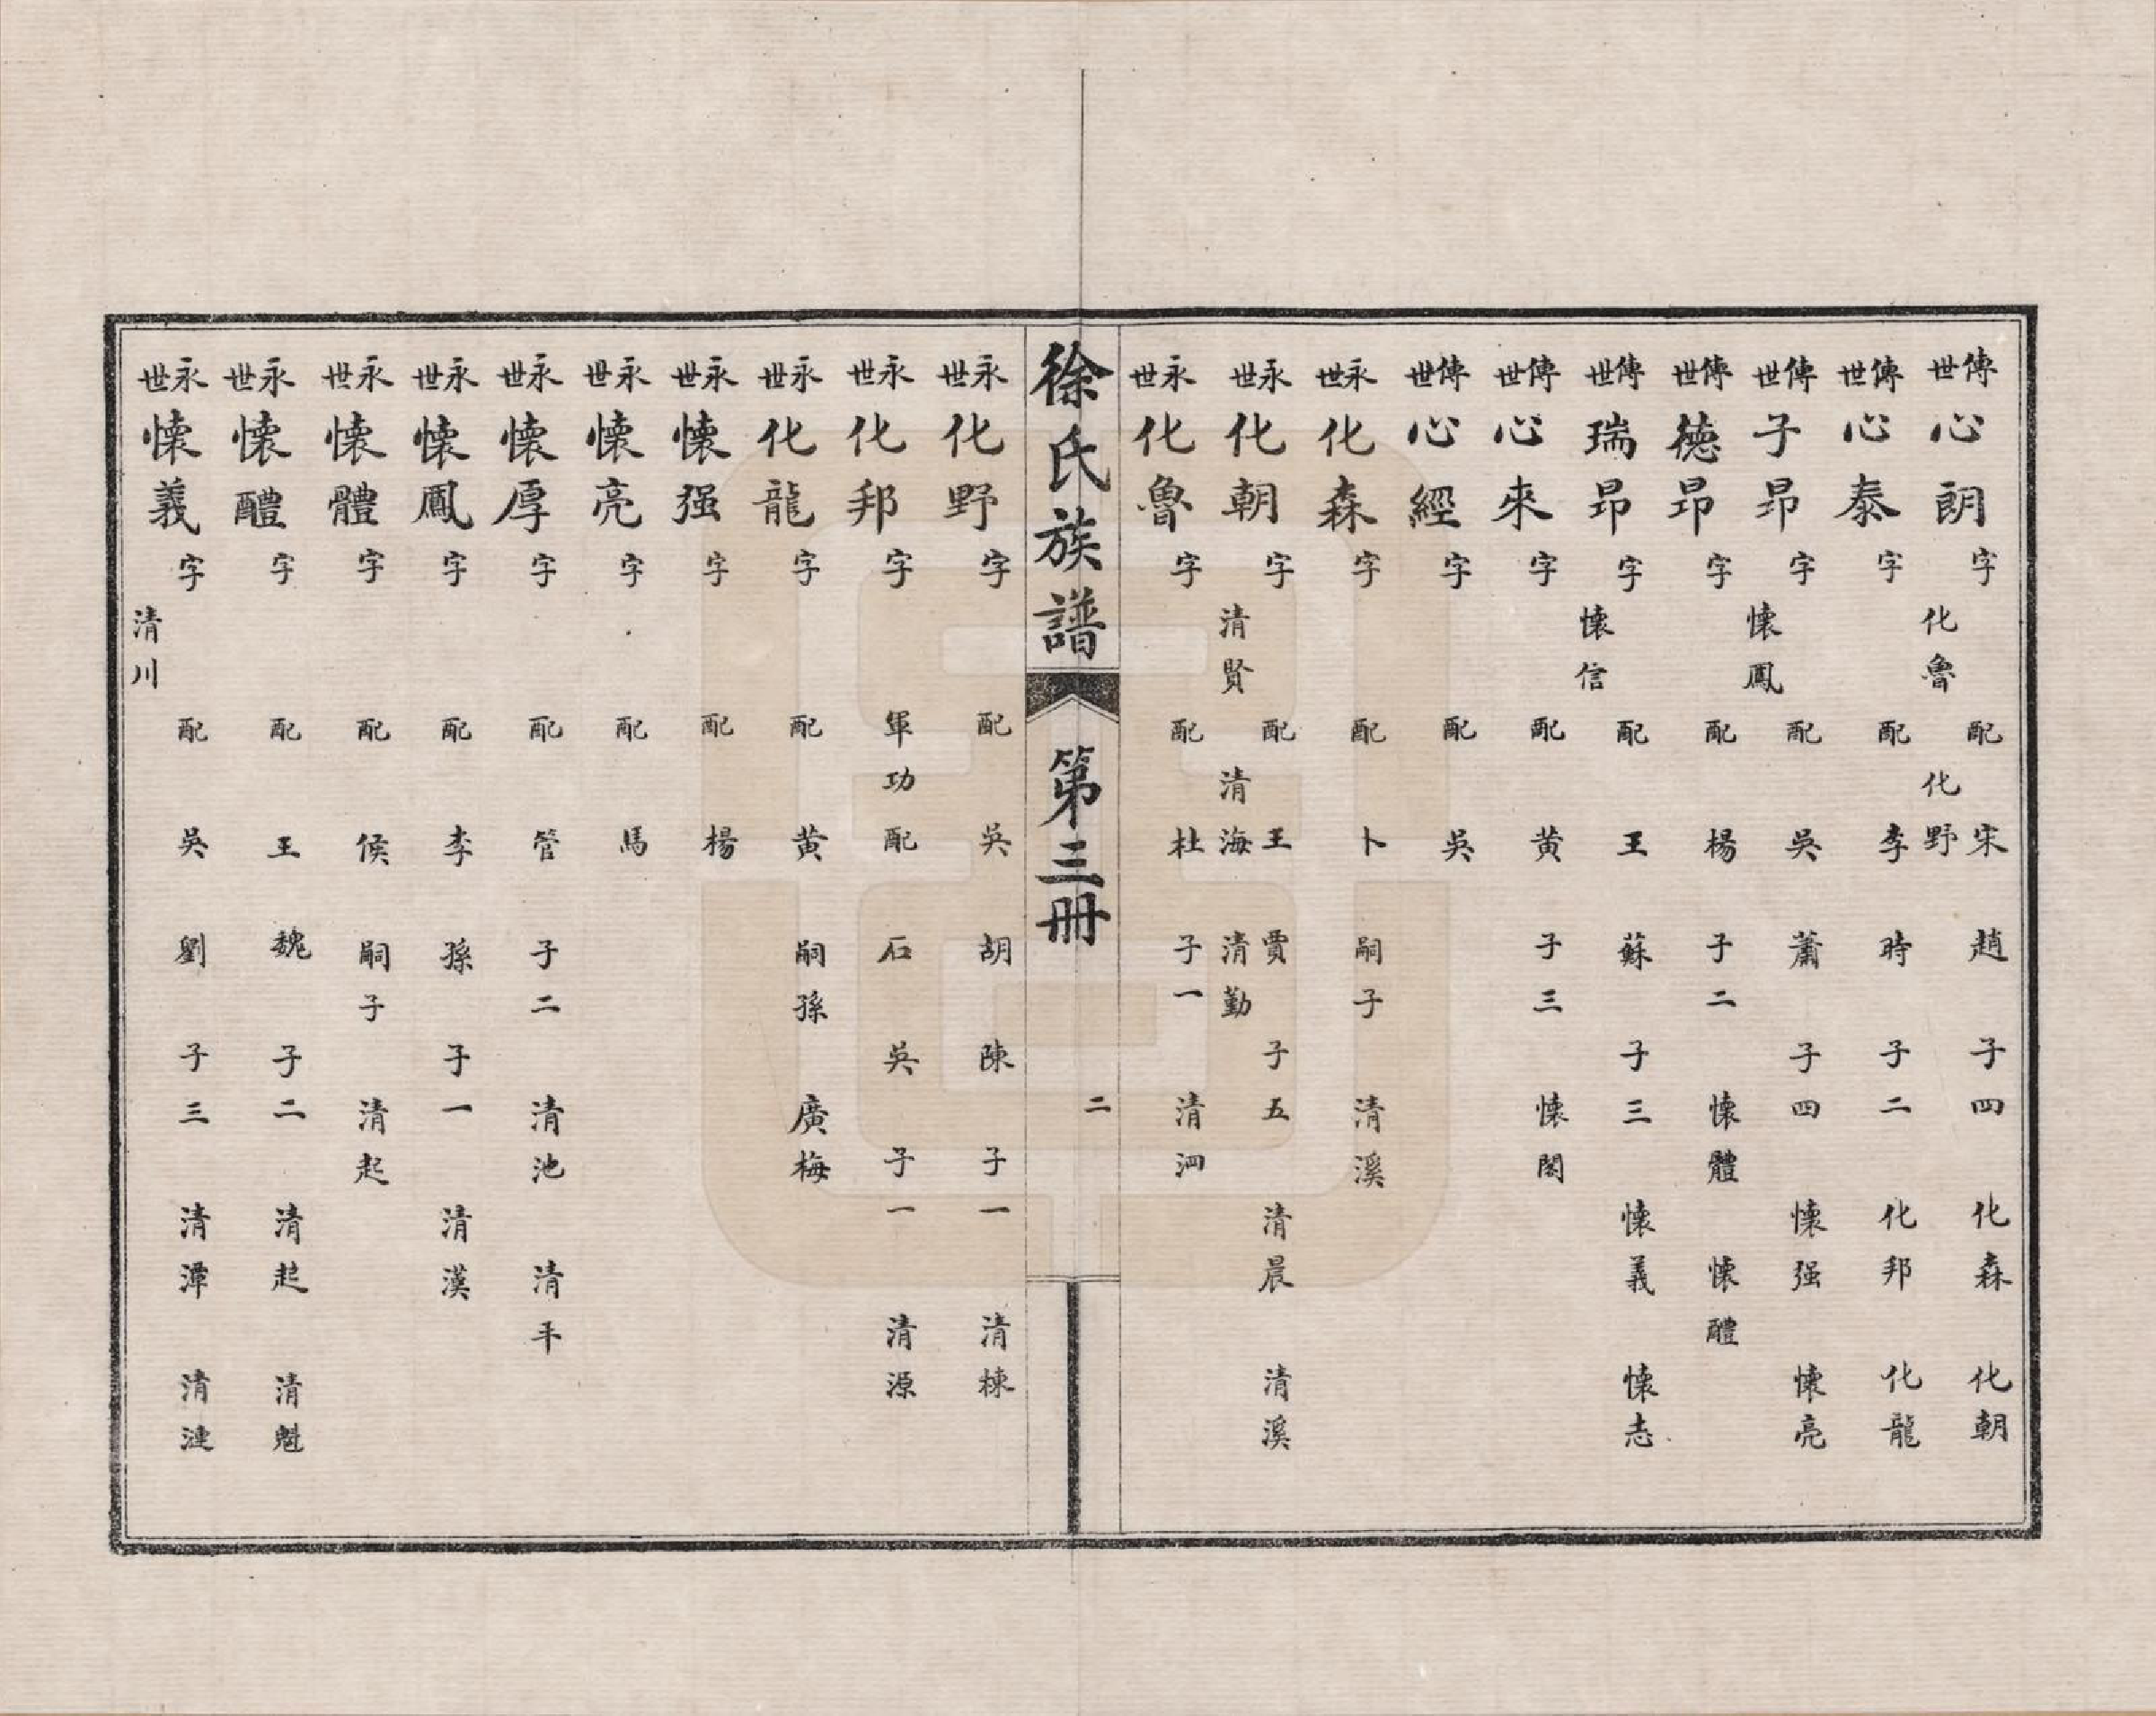 傳世 心朗 字 配 宋 趙 子四 化森 化朝
化魯 化野
傳世 心泰 字 配 李 時 子二 化邦 化龍
傳世 子昂 字 配 吳 蕭 子四 懐强 懐亮
懐鳳
傳世 德昂 字 配 楊 子二 懐體 懐醴
傳世 瑞昂 字 配 王 蘇 子三 懐義 懐志
懐信
傳世 心來 字 配 黄 子三 懐閣
傳世 心經 字 配 吳
永世 化森 字 配 卜 嗣子 清溪
永世 化朝 字 配 王 賈 子五 清晨 清溪
清賢 清海 清勤
永世 化魯 字 配 杜 子一 清泗
徐氏族譜 第三冊 二
永世 化野 字 配 吳 胡 陳 子一 清棟
永世 化邦 字 軍功 配 石 吳 子一 清源
永世 化龍 字 配 黄 嗣孫 廣梅
永世 懐强 字 配 楊
永世 懐亮 字 配 馬
永世 懐厚 字 配 管 子二 清池 清平
永世 懐鳳 字 配 李 孫 子一 清漢
永世 懐體 字 配 侯 嗣子 清起
永世 懐醴 字 配 王 魏 子二 清起 清魁
永世 懐義 字 配 吳 劉 子三 清潭 清漣
清川